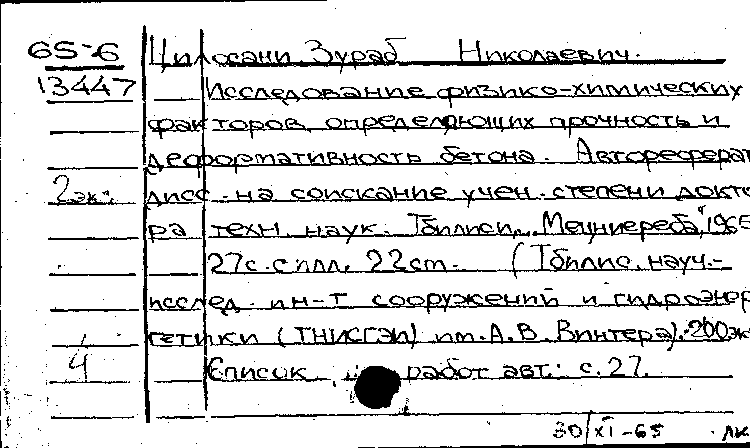 65-6 Цилосани Зураб Николаевич.
13447 Исследование физико-химических
факторов, определяющих прочность и
деформативность бетона. Автореферат
2 экз. дисс. на соискание учен. степени докто-
ра техн. наук. Тбилиси, "Мецниереба", 1965
27 с. с илл. 22 см. (Тбилис. науч.-
исслед. ин-т сооружений и гидроэнер-
гетики (ТНИСГЭИ) им. А. В. Винтера). 200 эк
4 Список работ авт.: с. 27.
30/XI-65 ЛК